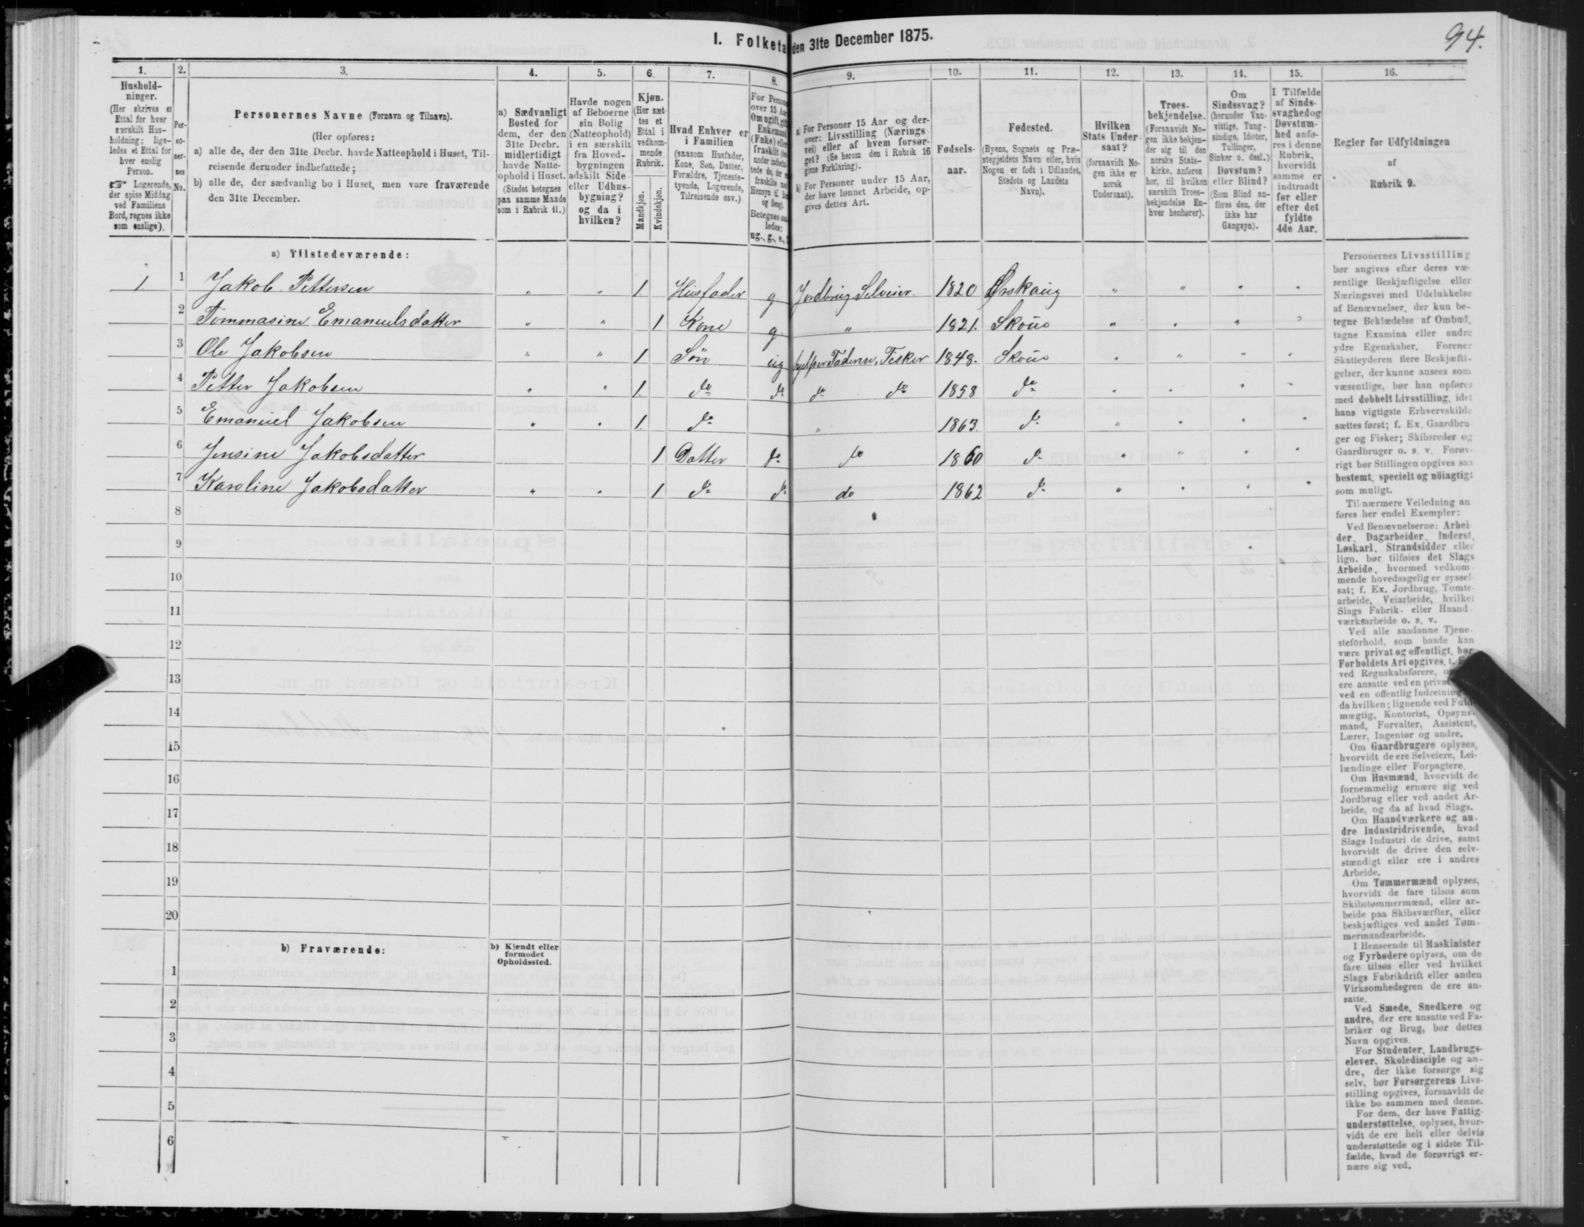 94.
I. Folketa
den 31te December 1875.
1. 2. 3. 4. 5. 6. 7. 8. 9. 10. 11. 12. 13. 14. 15. 16.
Hushold-
ninger.
(Her skrives et
Ettal for hver
særskilt Hus-
holdning; lige-
ledes et Ettal for
hver enslig
Person.
☞ Logerende,
der spise Middag
ved Familiens
Bord, regnes ikke
som enslige).
Per-
so-
ner-
nes
No.
Personernes Navne (Fornavn og Tilnavn).
(Her opføres:
a) alle de, der den 31te Decbr. havde Natteophold i Huset, Til-
reisende derunder indbefattede;
b) alle de, der sædvanlig bo i Huset, men vare fraværende
den 31te December.
a) Sædvanligt
Bosted for
dem, der den
31te Decbr.
midlertidigt
havde Natte-
ophold i Huset.
(Stedet betegnes
paa samme Maade
som i Rubrik 11.)
Havde nogen
af Beboerne
sin Bolig
(Natteophold)
i en særskilt
fra Hoved-
bygningen
adskilt Side-
eller Udhus-
bygning?
og da i
hvilken?
Kjøn.
(Her sæt-
tes et
Ettal i
vedkom-
mende
Rubrik.
Mandkjøn.
Kvindekjøn.
Hvad Enhver er
i Familien
(saasom Husfader,
Kone, Søn, Datter,
Forældre, Tjeneste-
tyende, Logerende,
Tilreisende osv.)
For Persone
over 15 Aar
Om ugift, gift
Enkemand
(Enke) eller
fraskilt
Betegnes
ledes:
ug., g., e.,
a) For Personer 15 Aar og der-
over: Livsstilling (Nærings
vei) eller af hvem forsør-
get? (Se herom den i Rubrik 16
givne Forklaring).
b) For Personer under 15 Aar,
der have lønnet Arbeide, op-
gives dettes Art.
Fødsels-
aar.
Fødested.
(Byens, Sognets og Præ-
stegjeldets Navn eller, hvis
Nogen er født i Udlandet,
Stedets og Landets
Navn).
Hvilken
Stats Under-
saat?
(forsaavidt No-
gen ikke er
norsk
Undersaat).
Troes-
bekjendelse.
(Forsaavidt No-
gen ikke bekjen-
der sig til den
norske Stats-
kirke, anføres
her, til hvilken
særskilt Troes-
bekjendelse En-
hver henhører).
Om
Sindssvag?
(herunder Van-
vittige, Tung-
sindige, Idioter,
Tullinger,
Sinker o. desl.)
Døvstum?
eller Blind?
(Som Blind an-
føres den, der
ikke har
Gangsyn).
I Tilfælde
af Sinds-
svaghed og
Døvstum-
hed anfø-
res i denne
Rubrik,
hvorvidt
samme er
indtraadt
før eller
efter det
fyldte
4de Aar.
Regler for Udfyldningen
af
Rubrik 9.
a) Tilstedeværende:
1 1 Jakob Pettersen " " 1 Husfader g Jordbrug Selveier 1820 Ørskoug " " " "
2 Tommasine Emanuelsdatter " " 1 Kone g " 1821. Skouo " " " "
3 Ole Jakobsen " " 1 Søn ug hjelper Faderen, Fisker 1848. Skouo " " " "
4 Petter Jakobsen " " 1 do do do do 1858 do " " " "
5 Emanuel Jakobsen " " 1 do " 1863 do " " " "
6 Jensine Jakobsdatter 1 Datter do do 1860 do " " " "
7 Karoline Jakobsdatter " " 1 do do do 1862 do " " " "
8
9
10
11
12
13
14
15
16
17
18
19
20
b) Fraværende:
b) Kjendt eller
formodet
Opholdssted.
1
2
3
4
5
6
Personernes Livsstilling
bør angives efter deres væ-
sentlige Beskjæftigelse eller
Næringsvei med Udelukkelse
af Benævnelser, der kun be-
tegne Beklædelse af Ombud,
tagne Examina eller andre
ydre Egenskaber. Forener
Skatteyderen flere Beskjæfti-
gelser, der kunne ansees som
væsentlige, bør han opføres
med dobbelt Livsstilling, idet
hans vigtigste Erhvervskilde
sættes først; f. Ex. Gaardbru-
ger og Fisker; Skibsreder og
Gaardbruger o. s. v. Forøv-
rigt bør Stillingen opgives saa
bestemt, specielt og nøiagtigt
som muligt.
Til nærmere Veiledning an
føres her endel Exempler:
Ved Benævnelserne: Arbei-
der, Dagarbeider, Inderst,
Løskarl, Strandsidder eller
lign. bør tilføies det Slags
Arbeide, hvormed vedkom-
mende hovedsagelig er syssel-
sat; f. Ex. Jordbrug, Tomte-
arbeide, Veiarbeide, hvilket
Slags Fabrik- eller Haand-
værksarbeide o. s. v.
Ved alle saadanne Tjene-
steforhold, som baade kan
være privat og offentligt, bør
Forholdets Art opgives, t. Ex.
ved Regnskabsførere, o
ere ansatte ved en privat
ved en offentlig Indretning
da hvilken; lignende ved Fuld-
mægtig, Kontorist, Opsyns-
mand, Forvalter, Assistent,
Lærer, Ingeniør og andre.
Om Gaardbrugere oplyses,
hvorvidt de ere Selveiere, Lei-
lændinge eller Forpagtere.
Om Husmænd, hvorvidt de
fornemmelig ernære sig ved
Jordbrug eller ved andet Ar-
beide, og da af hvad Slags.
Om Haandværkere og an-
dre Industridrivende, hvad
Slags Industri de drive, samt
hvorvidt de drive den selv-
stændigt eller ere i andres
Arbeide.
Om Tømmermænd oplyses,
hvorvidt de fare tilsøs som
Skibstømmermænd, eller ar-
beide paa Skibsværfter, eller
beskjæftiges ved andet Tøm-
mermandsarbeide.
I Henseende til Maskinister
og Fyrbødere oplyses, om de
fare tilsøs eller ved hvilket
Slags Fabrikdrift eller anden
Virksomhedsgren de ere an-
satte.
Ved Smede, Snedkere og
andre, der ere ansatte ved Fa-
briker og Brug, bør dettes
Navn opgives.
For Studenter, Landbrugs-
elever, Skoledisciple og an-
dre, der ikke forsørge sig
selv, bør Forsørgerens Livs-
stilling opgives, forsaavidt de
ikke bo sammen med denne.
For dem, der have Fattig-
understøttelse, oplyses, hvor-
vidt de ere helt eller delvis
understøttede og i sidste Til-
fælde, hvad de forøvrigt er-
nære sig ved.